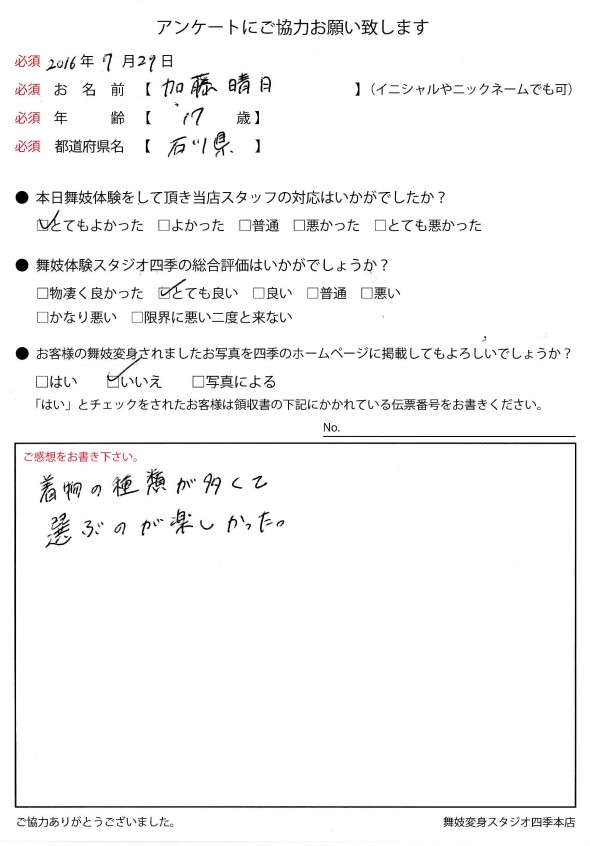 アンケートにご協力お願い致します
必須 2016年 7月29日
必須 お名前 【 加藤晴月 】（イニシャルやニックネームでも可）
必須 年齢 【 17 歳】
必須 都道府県名 【 石川県 】
● 本日舞妓体験をして頂き当店スタッフの対応はいかがでしたか？
☑とてもよかった □よかった □普通 □悪かった □とても悪かった
● 舞妓体験スタジオ四季の総合評価はいかがでしょうか？
□物凄く良かった ☑とても良い □良い □普通 □悪い
□かなり悪い □限界に悪い二度と来ない
● お客様の舞妓変身されましたお写真を四季のホームページに掲載してもよろしいでしょうか？
□はい ☑いいえ □写真による
「はい」とチェックをされたお客様は領収書の下記にかかれている伝票番号をお書きください。
No.
ご感想をお書き下さい。
着物の種類が多くて
選ぶのが楽しかった。
ご協力ありがとうございました。
舞妓変身スタジオ四季本店